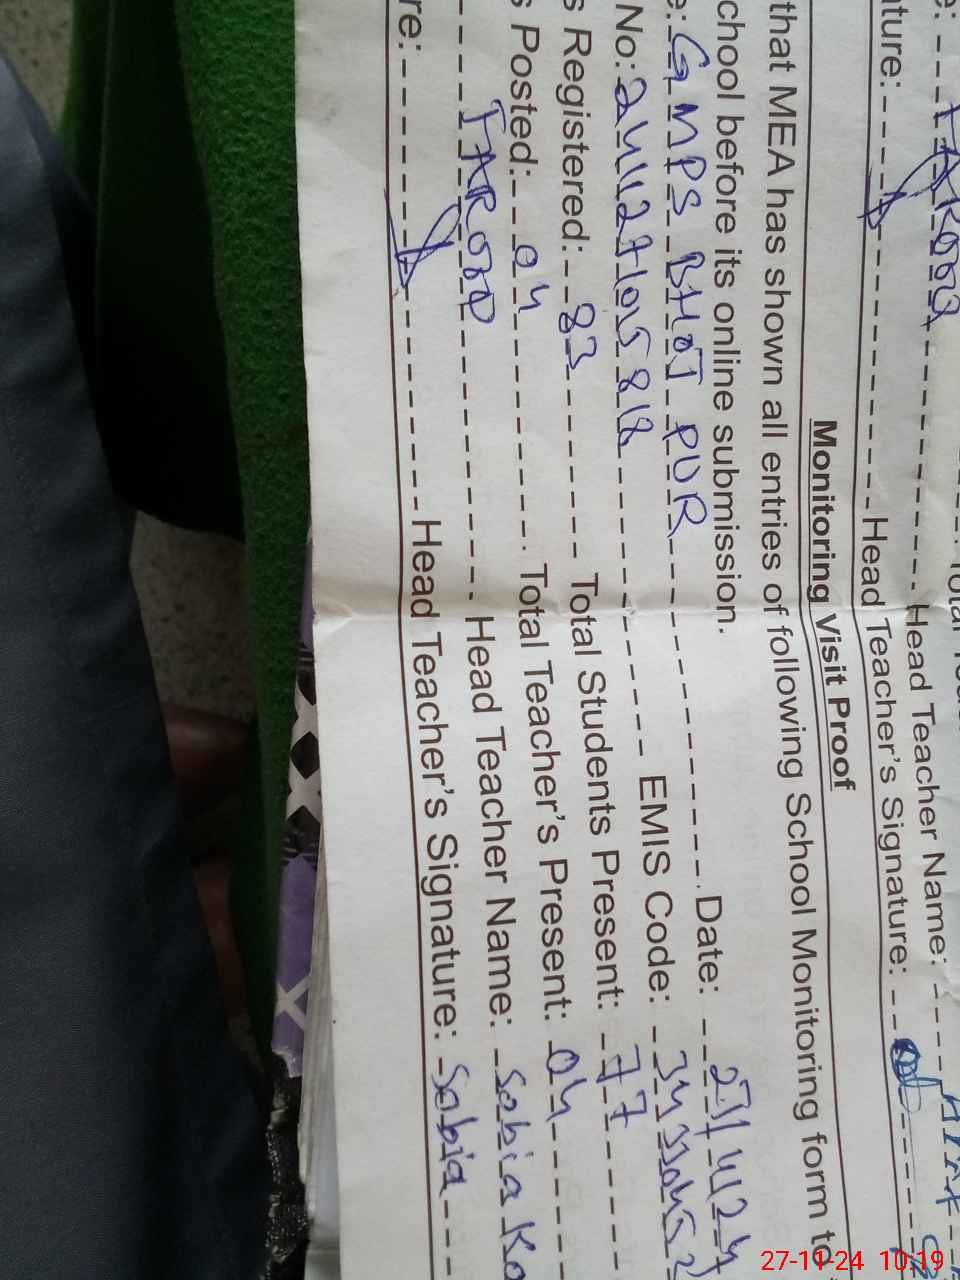 e: TAROOQ Head Teacher Name:
ature: Head Teacher's Signature:
Monitoring Visit Proof
that MEA has shown all entries of following School Monitoring form to
chool before its online submission.
e: GMPS BHOJ PUR Date:
No: EMIS Code:
s Registered: 83 Total Students Present: 77
s Posted: 04 Total Teacher's Present: 04
TAROOQ Head Teacher Name: Sobia
re: Head Teacher's Signature: Sobia
27-11-24 10:19